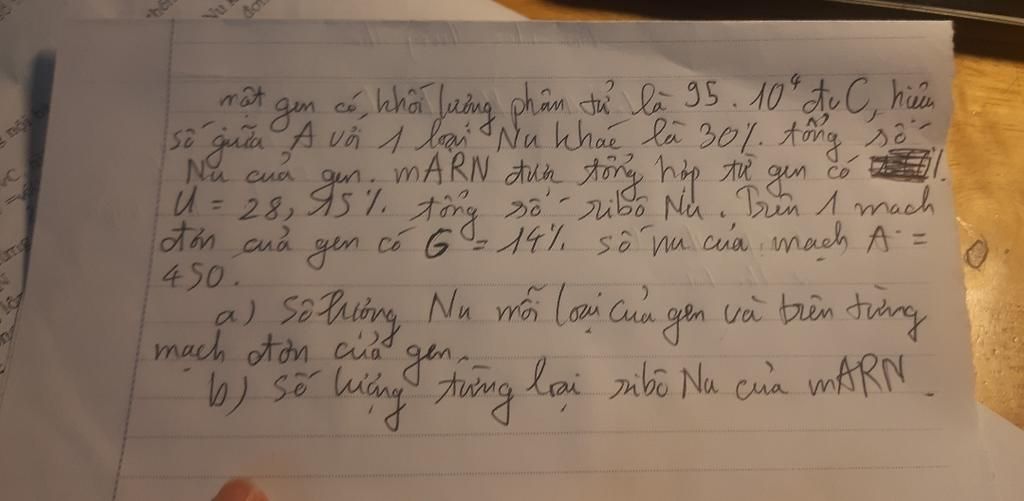 một gen có, khối lượng phân tử là 95.10⁴ đvC, hiệu
số giữa A với 1 loại Nu khác là 30% tổng số
Nu của gen. mARN được tổng hợp từ gen có %.
U = 28,15% tổng số ribô Nu. Trên 1 mạch
đơn của gen có G = 14% số nu của mạch A =
450.
a) Số lượng Nu mỗi loại của gen và trên từng
mạch đơn của gen.
b) Số lượng từng loại ribô Nu của mARN.